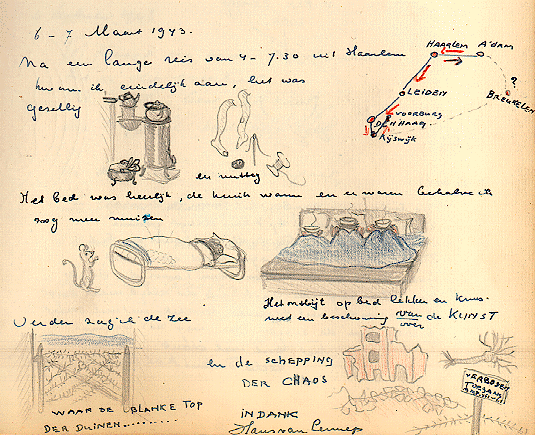 6 - 7 Maart 1943.
Na een lange reis van 4 - 7.30 uit Haarlem
kwam ik eindelijk aan, het was
gezellig
en nuttig
HAARLEM A'dam
LEIDEN
?
BREUKELEN
VOORBURG
DEN HAAG
Rijswijk
Het bed was heerlijk, de kruik warm en er waren behalve ik
nog meer muizen
Het ontbijt op bed lekker en knus
met een beschouwing van de KUNST
over
Verder zag ik de zee
en de SCHEPPING
DER CHAOS
VERBODEN
TOEGANG
WAAR DE BLANKE TOP
DER DUINEN.........
IN DANK
Hans van Lennep